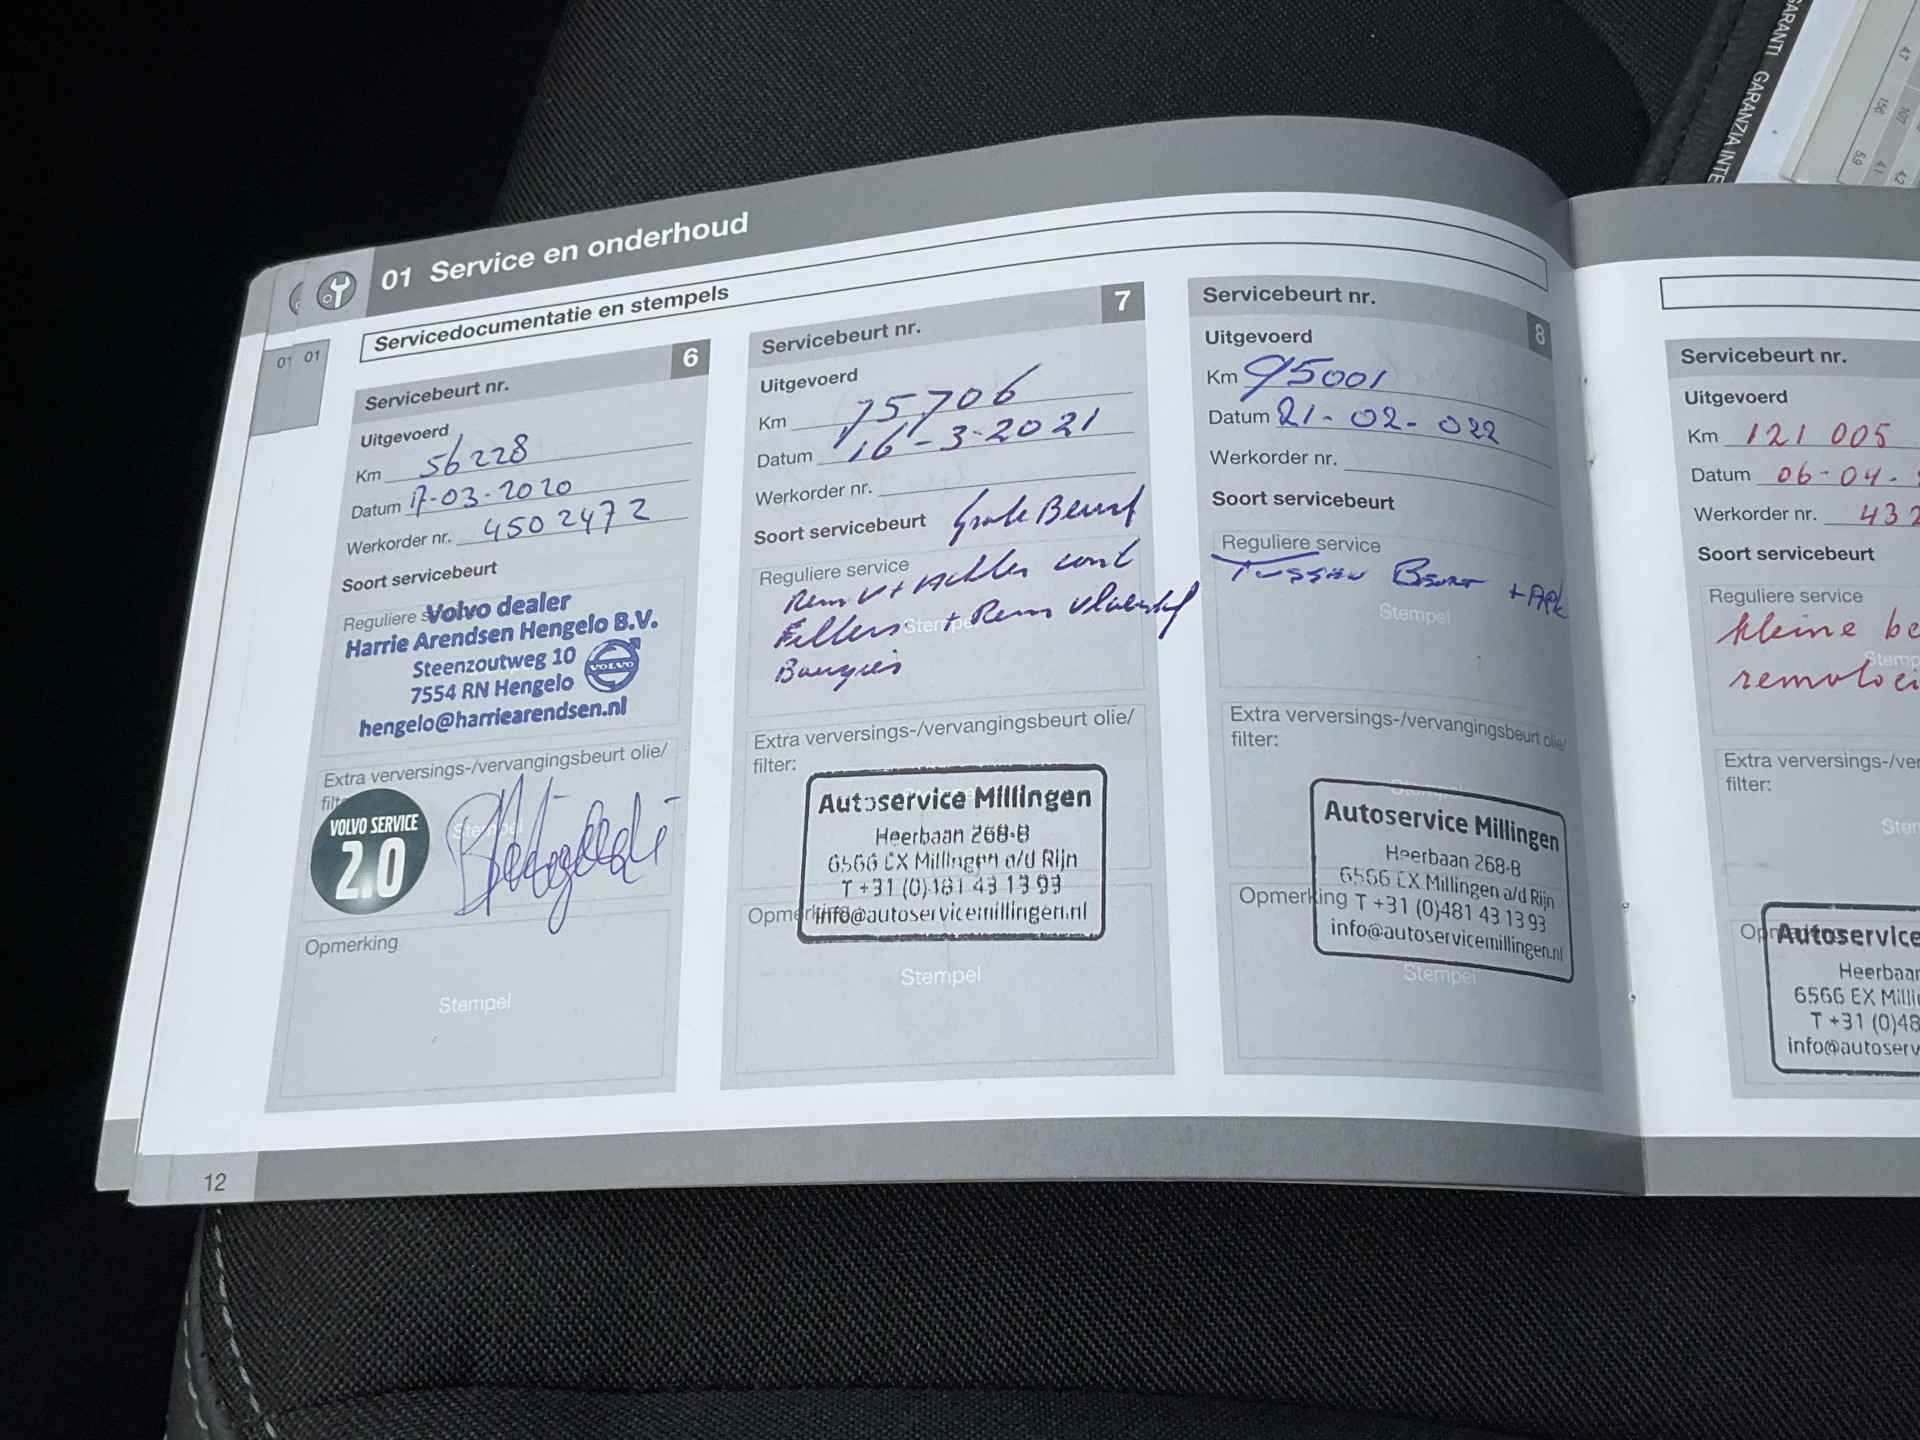 GARANTI GARANZIA INTE
47
156
107
6.9
4.1
42
01 Service en onderhoud
Servicedocumentatie en stempels
01 01
6
Servicebeurt nr.
Uitgevoerd
Km 56228
Datum 17-03-2020
Werkorder nr. 4502472
Soort servicebeurt
Reguliere
Volvo dealer
Harrie Arendsen Hengelo B.V.
Steenzoutweg 10
7554 RN Hengelo
VOLVO
hengelo@harriearendsen.nl
Extra verversings-/vervangingsbeurt olie/
VOLVO SERVICE
2.0
Stempel
Opmerking
Stempel
12
7
Servicebeurt nr.
Uitgevoerd
Km 75706
Datum 16-3-2021
Werkorder nr.
Soort servicebeurt Grote Beurt
Reguliere service
Rem V+ Achter cont
Filters + Rem vloeistof
Stempel
Bougies
Extra verversings-/vervangingsbeurt olie/
filter:
Autoservice Millingen
Heerbaan 268-B
6566 EX Millingen a/d Rijn
T +31 (0)481 43 13 93
Opmerking
info@autoservicemillingen.nl
Stempel
8
Servicebeurt nr.
Uitgevoerd
Km 95001
Datum 21-02-022
Werkorder nr.
Soort servicebeurt
Reguliere service
Tussen Beurt + APK
Stempel
Extra verversings-/vervangingsbeurt olie/
filter:
Stempel
Autoservice Millingen
Heerbaan 268-B
6566 EX Millingen a/d Rijn
Opmerking T +31 (0)481 43 13 93
info@autoservicemillingen.nl
Stempel
Servicebeurt nr.
Uitgevoerd
Km 121 005
Datum 06-04-
Werkorder nr. 432
Soort servicebeurt
Reguliere service
kleine be
Stemp
remvloei
Extra verversings-/ver
filter:
Ster
Autoservice
Heerbaan
6566 EX Milli
T +31 (0)48
info@autoserv